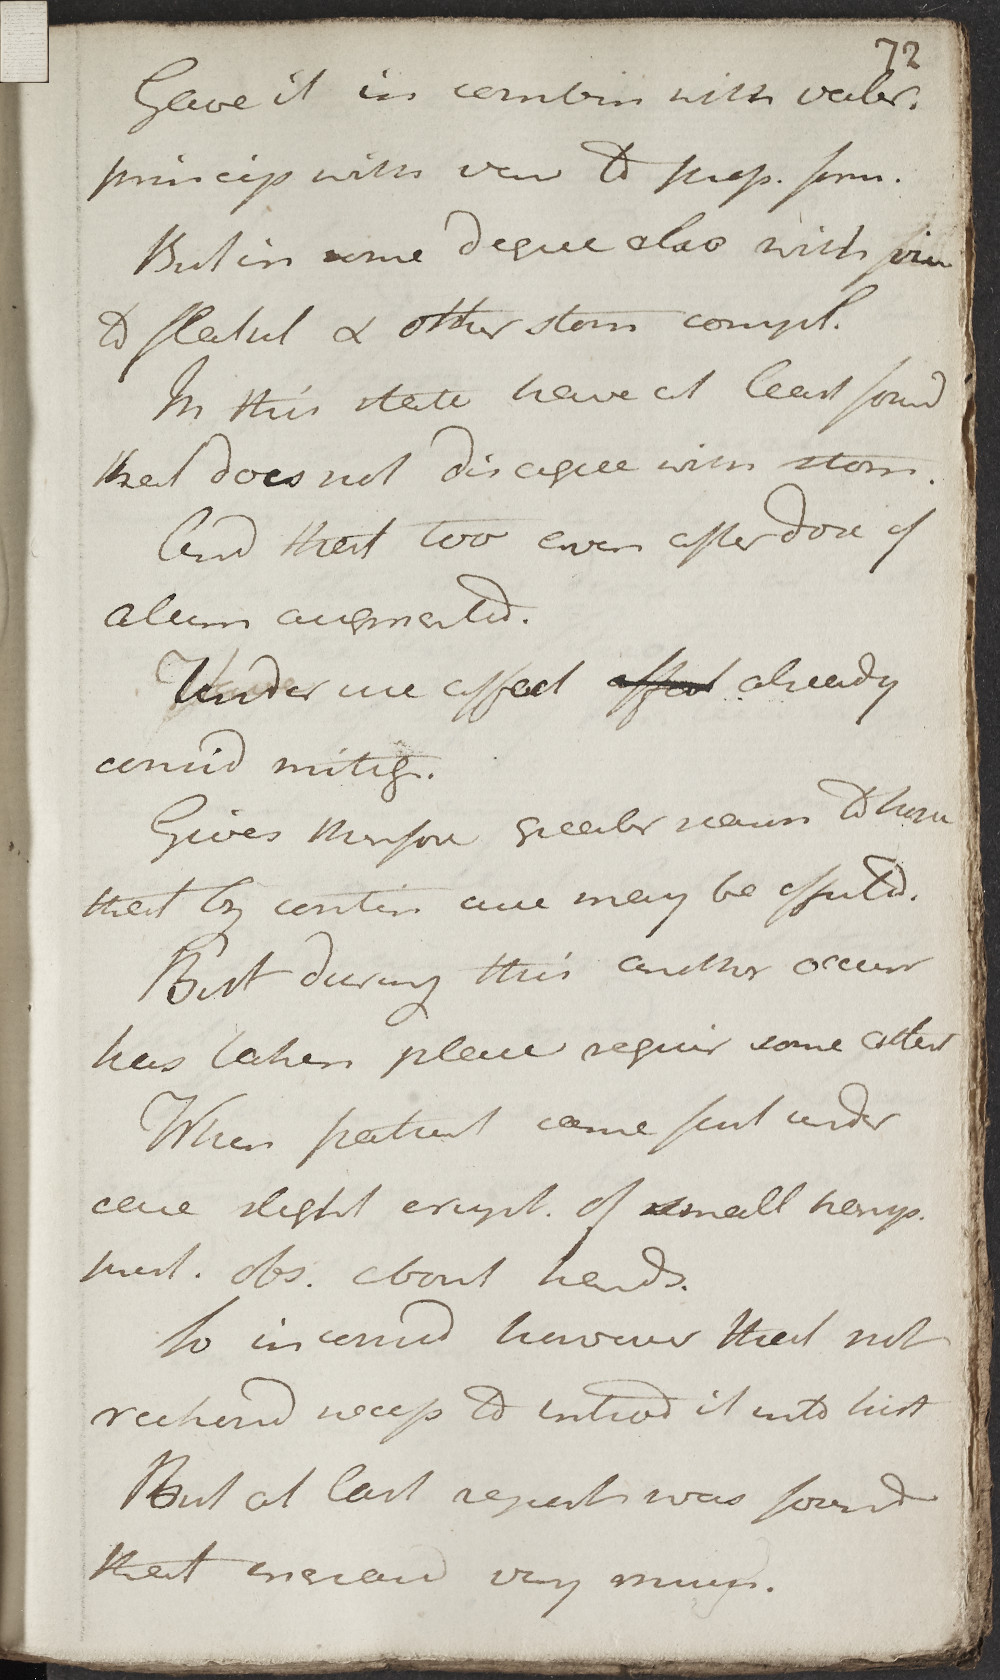 72
Gave it in combin with valer.
princip with view to prep. form.
But in some degree also with view
to flatul & other stom compl.
In this state have at least found
that does not disagree with stom.
And that too even after dose of
alum augmented.
Under use affect affect already
consid mitig.
Gives therefore greater reason to hope
that by contin cure may be effected.
But during this another occurr
has taken place requir some attent
When patient came first under
care slight erupt. of small
pust. obs. about hands.
So inconsid however that not
reckoned necess to introd it into hist
But at last report was found
that increased very much.